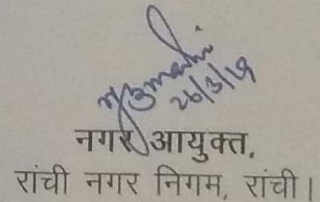 26/3/19
नगर आयुक्त,
रांची नगर निगम, रांची।